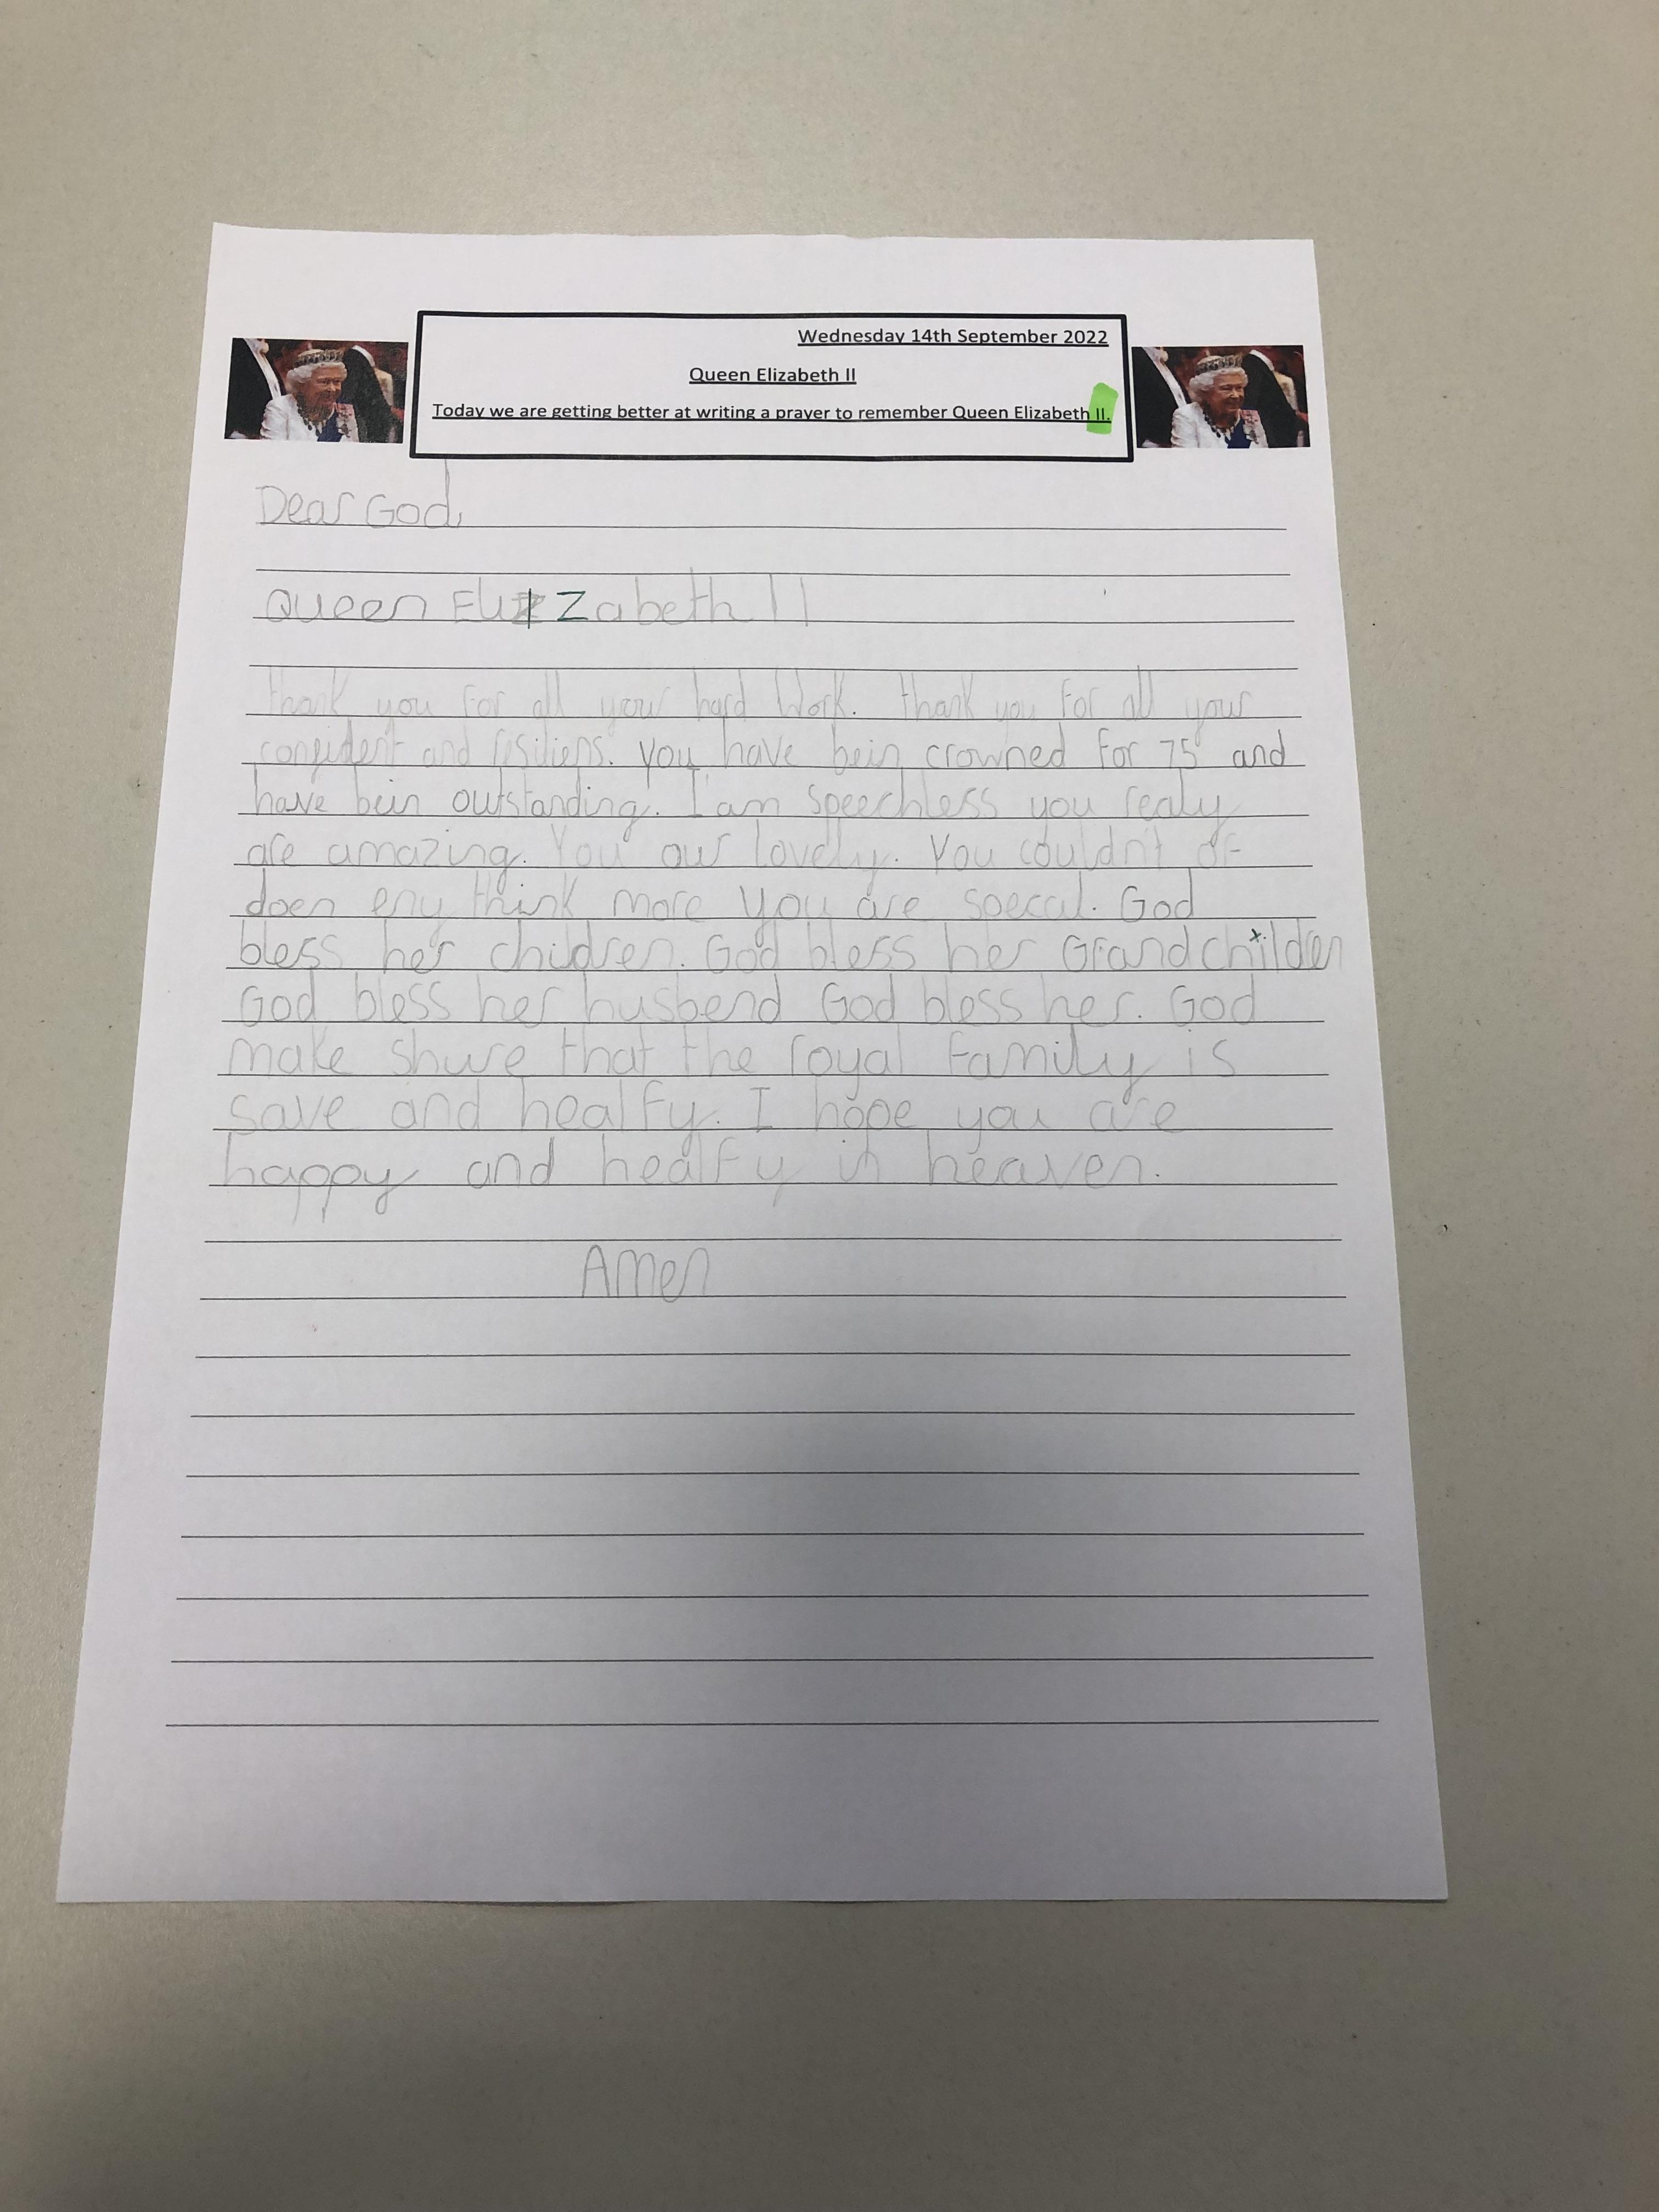 Wednesday 14th September 2022
Queen Elizabeth II
Today we are getting better at writing a prayer to remember Queen Elizabeth II.
Dear God,
Queen Elizabeth II
thank you for all your hard work. thank you for all your
confident and resiliens. you have bein crowned for 75 and
have bein outstanding. I am speechless you realy
are amazing. You our lovely. You couldn't of
doen eny think more you are specal. God
bless her children. God bless her Grandchilden
God bless her husbend God bless her. God
make shure that the royal family is
save and healfy. I hope you are
happy and healfy in heaven.
Amen